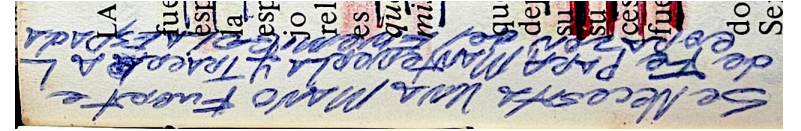 Se Necesita Una Mano Fuerte
de Fe PARA Mantenerla y Traer A L
corazon del Enemigo la Espada
LA
fue
esp
la
esp
jo
rel
es
que
mi
qu
de
su
su
ces
fue
do
Se